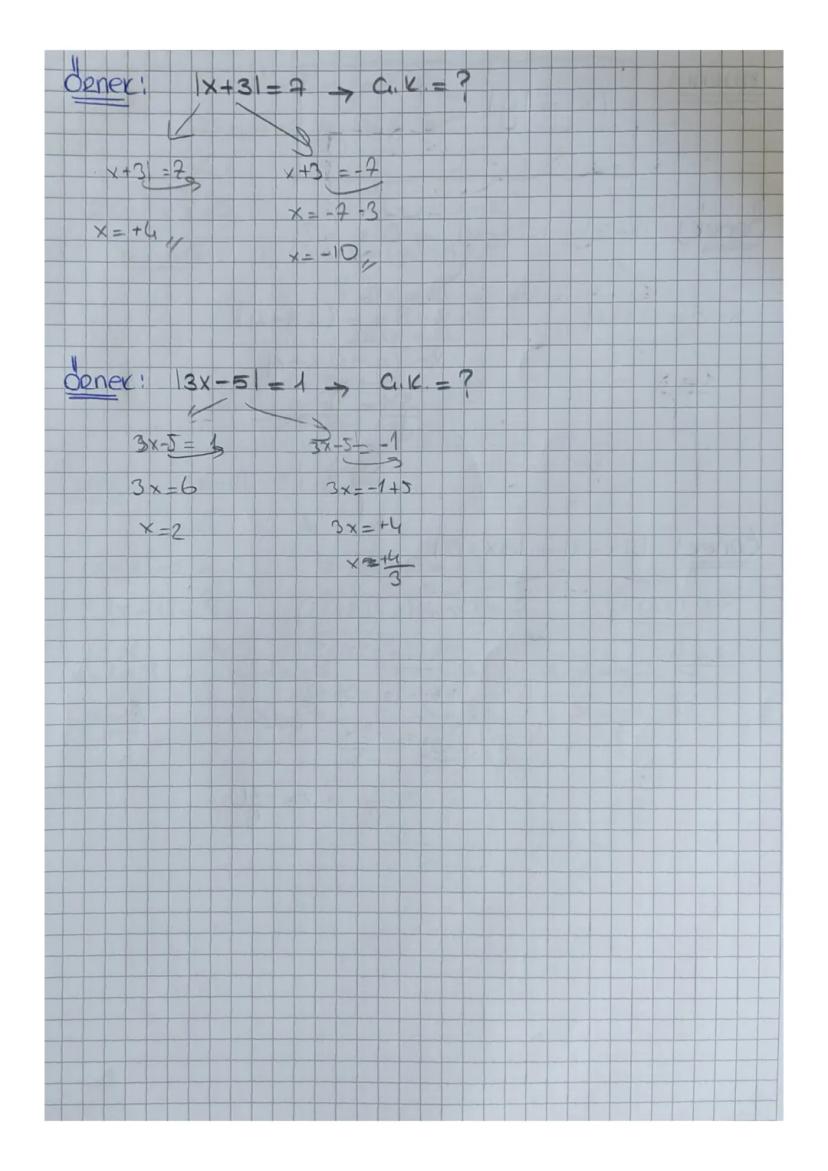 Örnek: |x+3| = 7 → Ç.K. = ?
x+3 = 7 x+3 = -7
x = +4 x = -7-3
x = -10
Örnek: |3x-5| = 1 → Ç.K. = ?
3x-5 = 1 3x-5 = -1
3x = 6 3x = -1+5
x = 2 3x = +4
x = +4/3